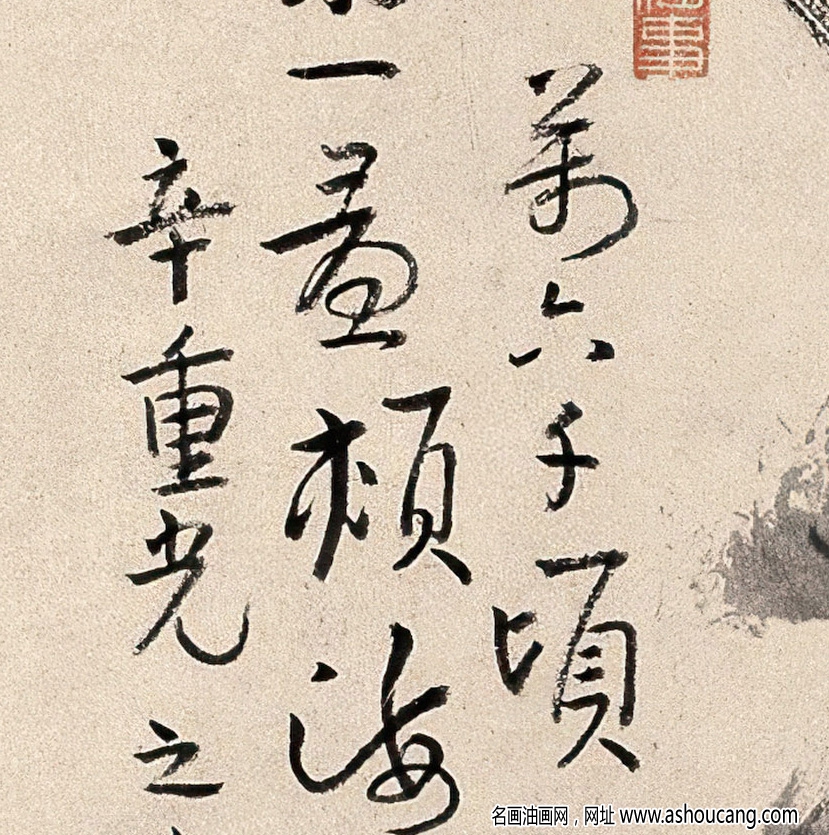 事
萬六千頃
一 海
辛重光之
名画油画网，网址 www.ashoucang.com